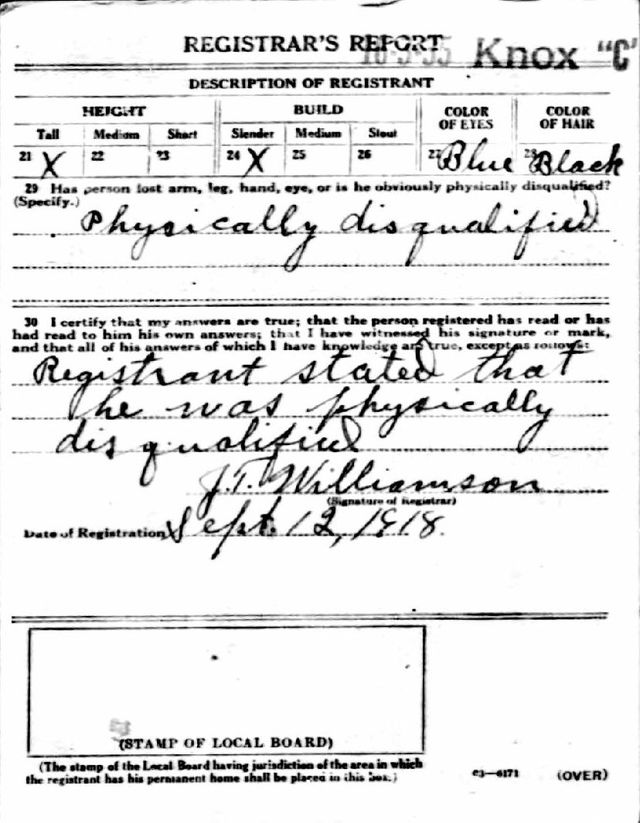 REGISTRAR'S REPORT
Knox "C"
DESCRIPTION OF REGISTRANT
HEIGHT BUILD COLOR OF EYES COLOR OF HAIR
Tall Medium Short Slender Medium Stout
21 X 22 23 24 X 25 26 27 Blue 28 Black
29 Has person lost arm, leg, hand, eye, or is he obviously physically disqualified?
(Specify.)
Physically disqualified
30 I certify that my answers are true; that the person registered has read or has
had read to him his own answers; that I have witnessed his signature or mark,
and that all of his answers of which I have knowledge are true, except as follows:
Registrant stated that
he was physically
disqualified
J.T. Williamson
(Signature of Registrar)
Date of Registration Sept. 12, 1918.
(STAMP OF LOCAL BOARD)
(The stamp of the Local Board having jurisdiction of the area in which
the registrant has his permanent home shall be placed in this box.)
03—6171 (OVER)